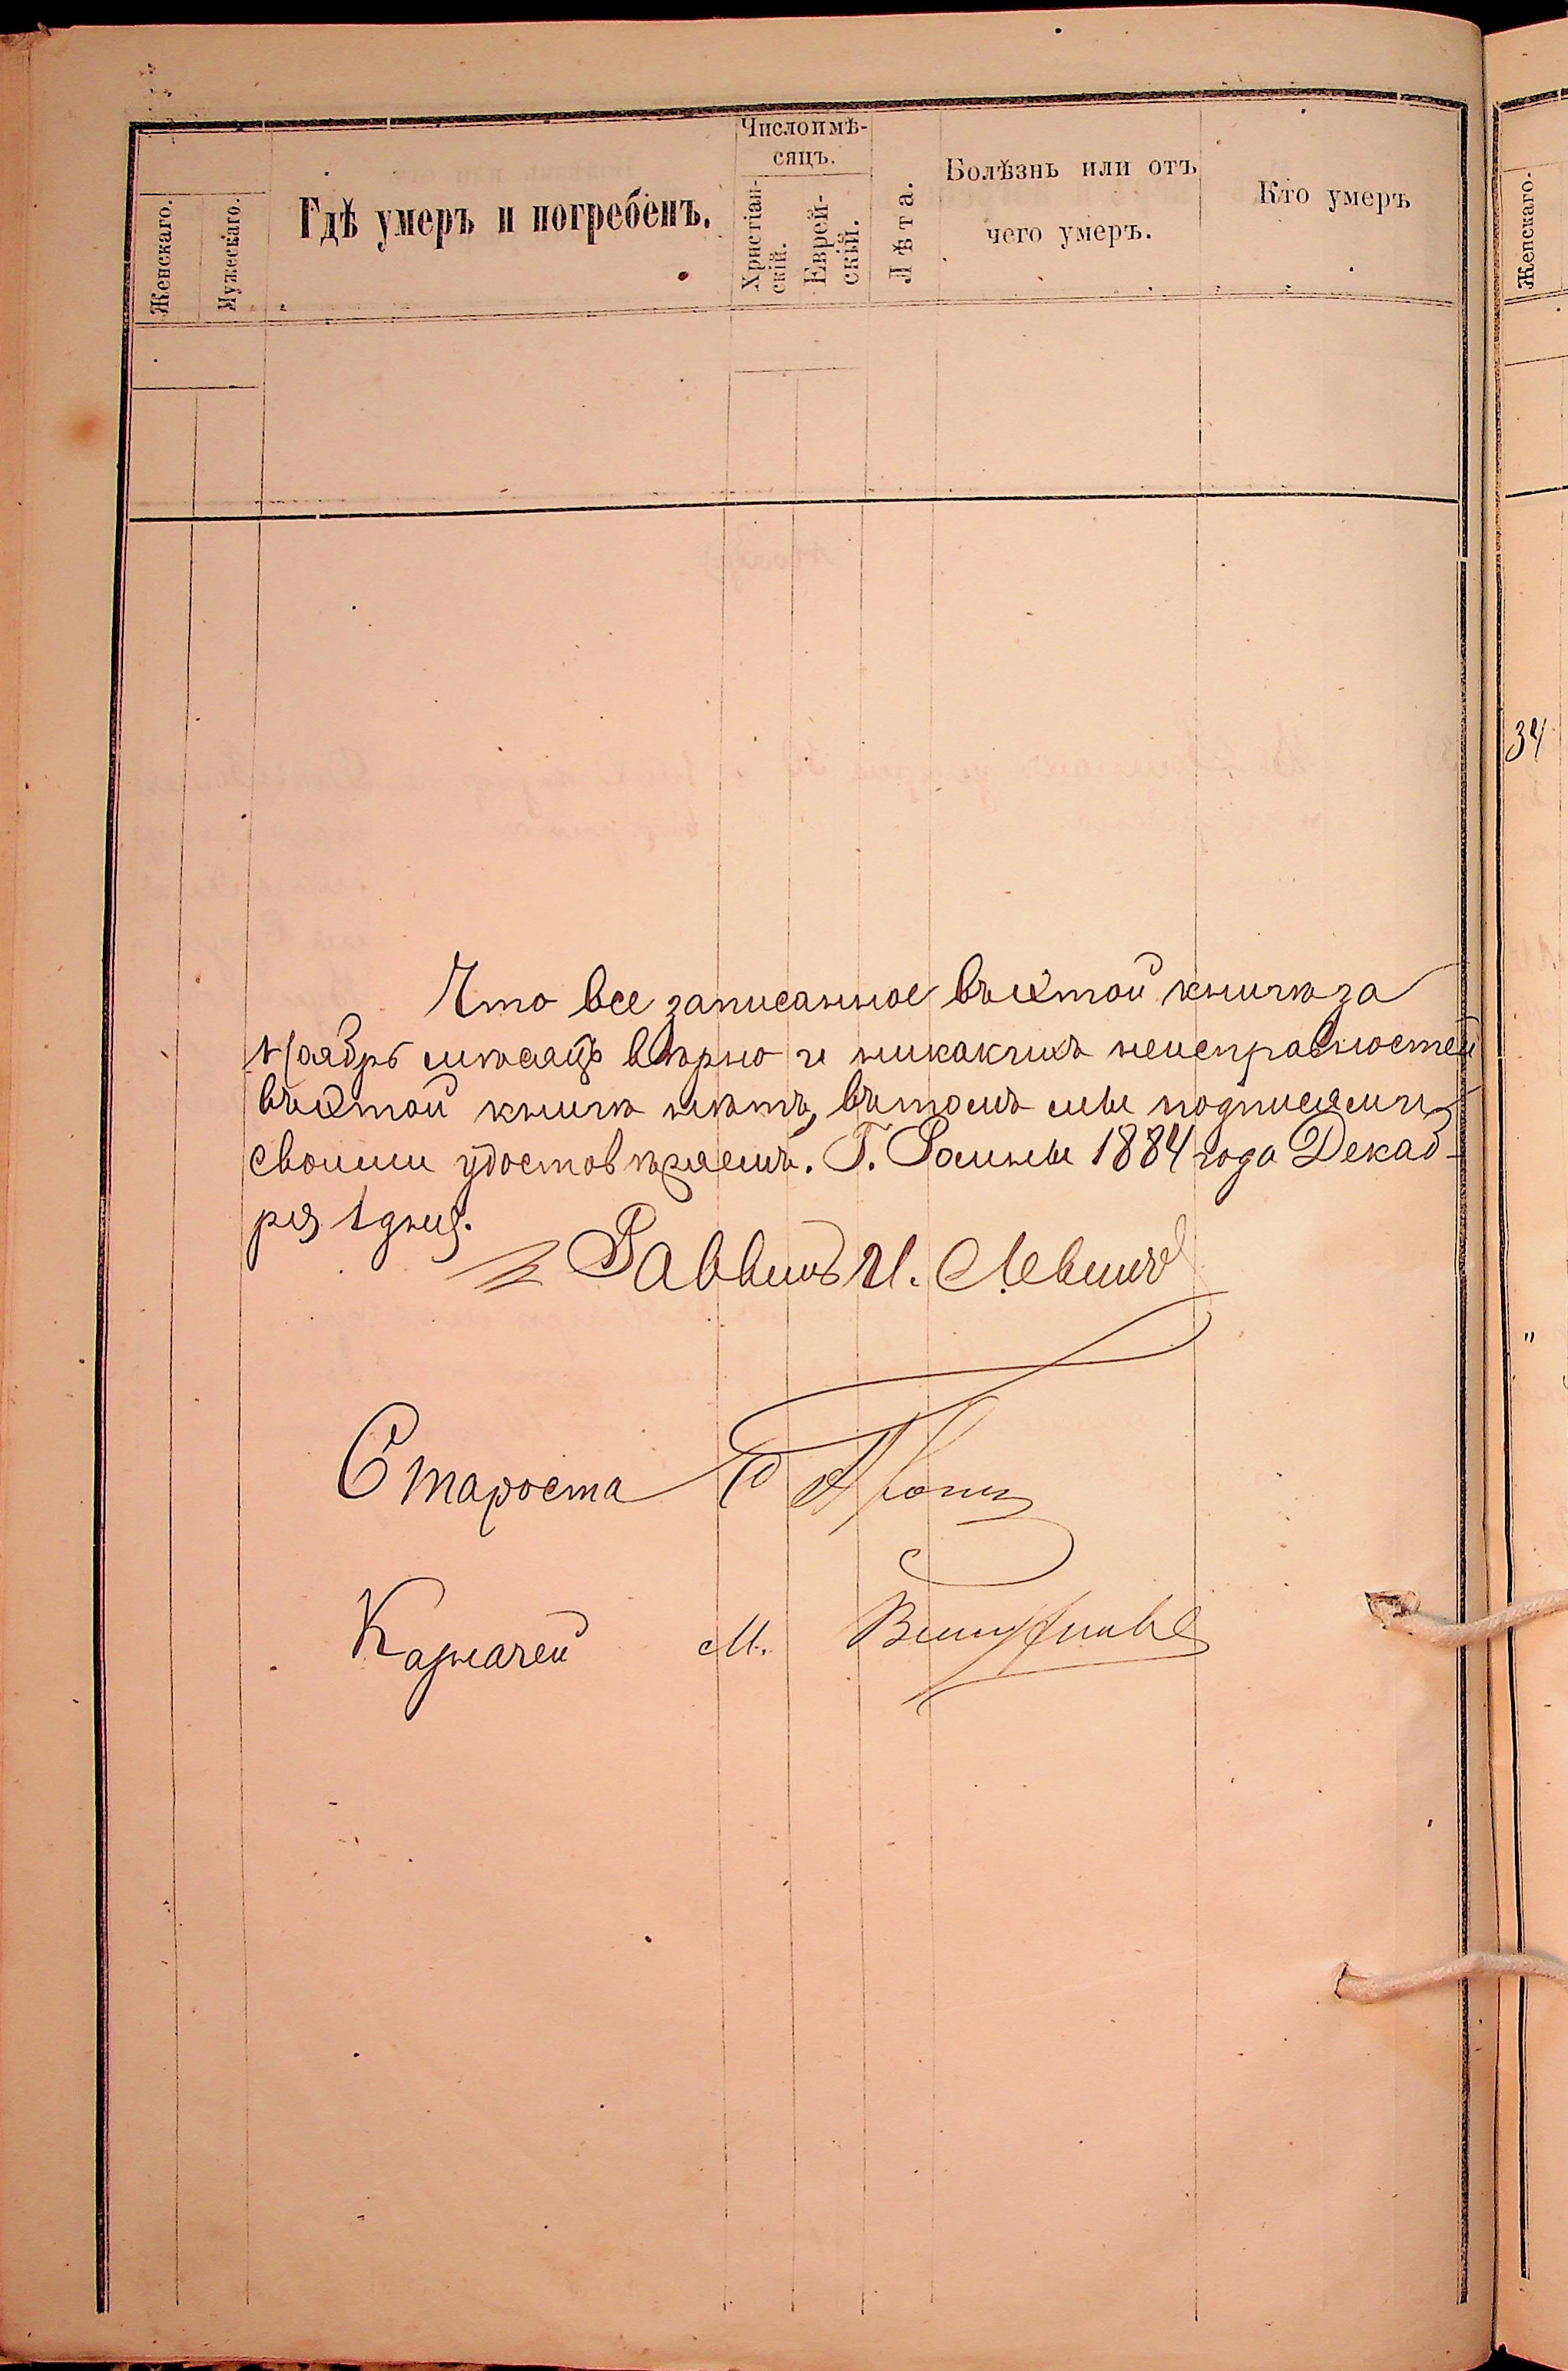 Числоимѣ-
сяцъ.
Женскаго.
Мужескаго.
Гдѣ умеръ и погребенъ.
Христіан-
скій.
Еврей-
скій.
Лѣта.
Болѣзнь или отъ
чего умеръ.
Кто умеръ
Женскаго.
34
Что все записанное въ этой книгѣ за
Ноябрь мѣсяцъ вѣрно и никакихъ неисправностей
въ этой книгѣ нѣтъ, въ томъ мы подписями
своими удостовѣряемъ. Г. Ромны 1884 года Декаб-
ря 1 дня.
Раввинъ И. Левинъ
Староста
Казначей М.
"